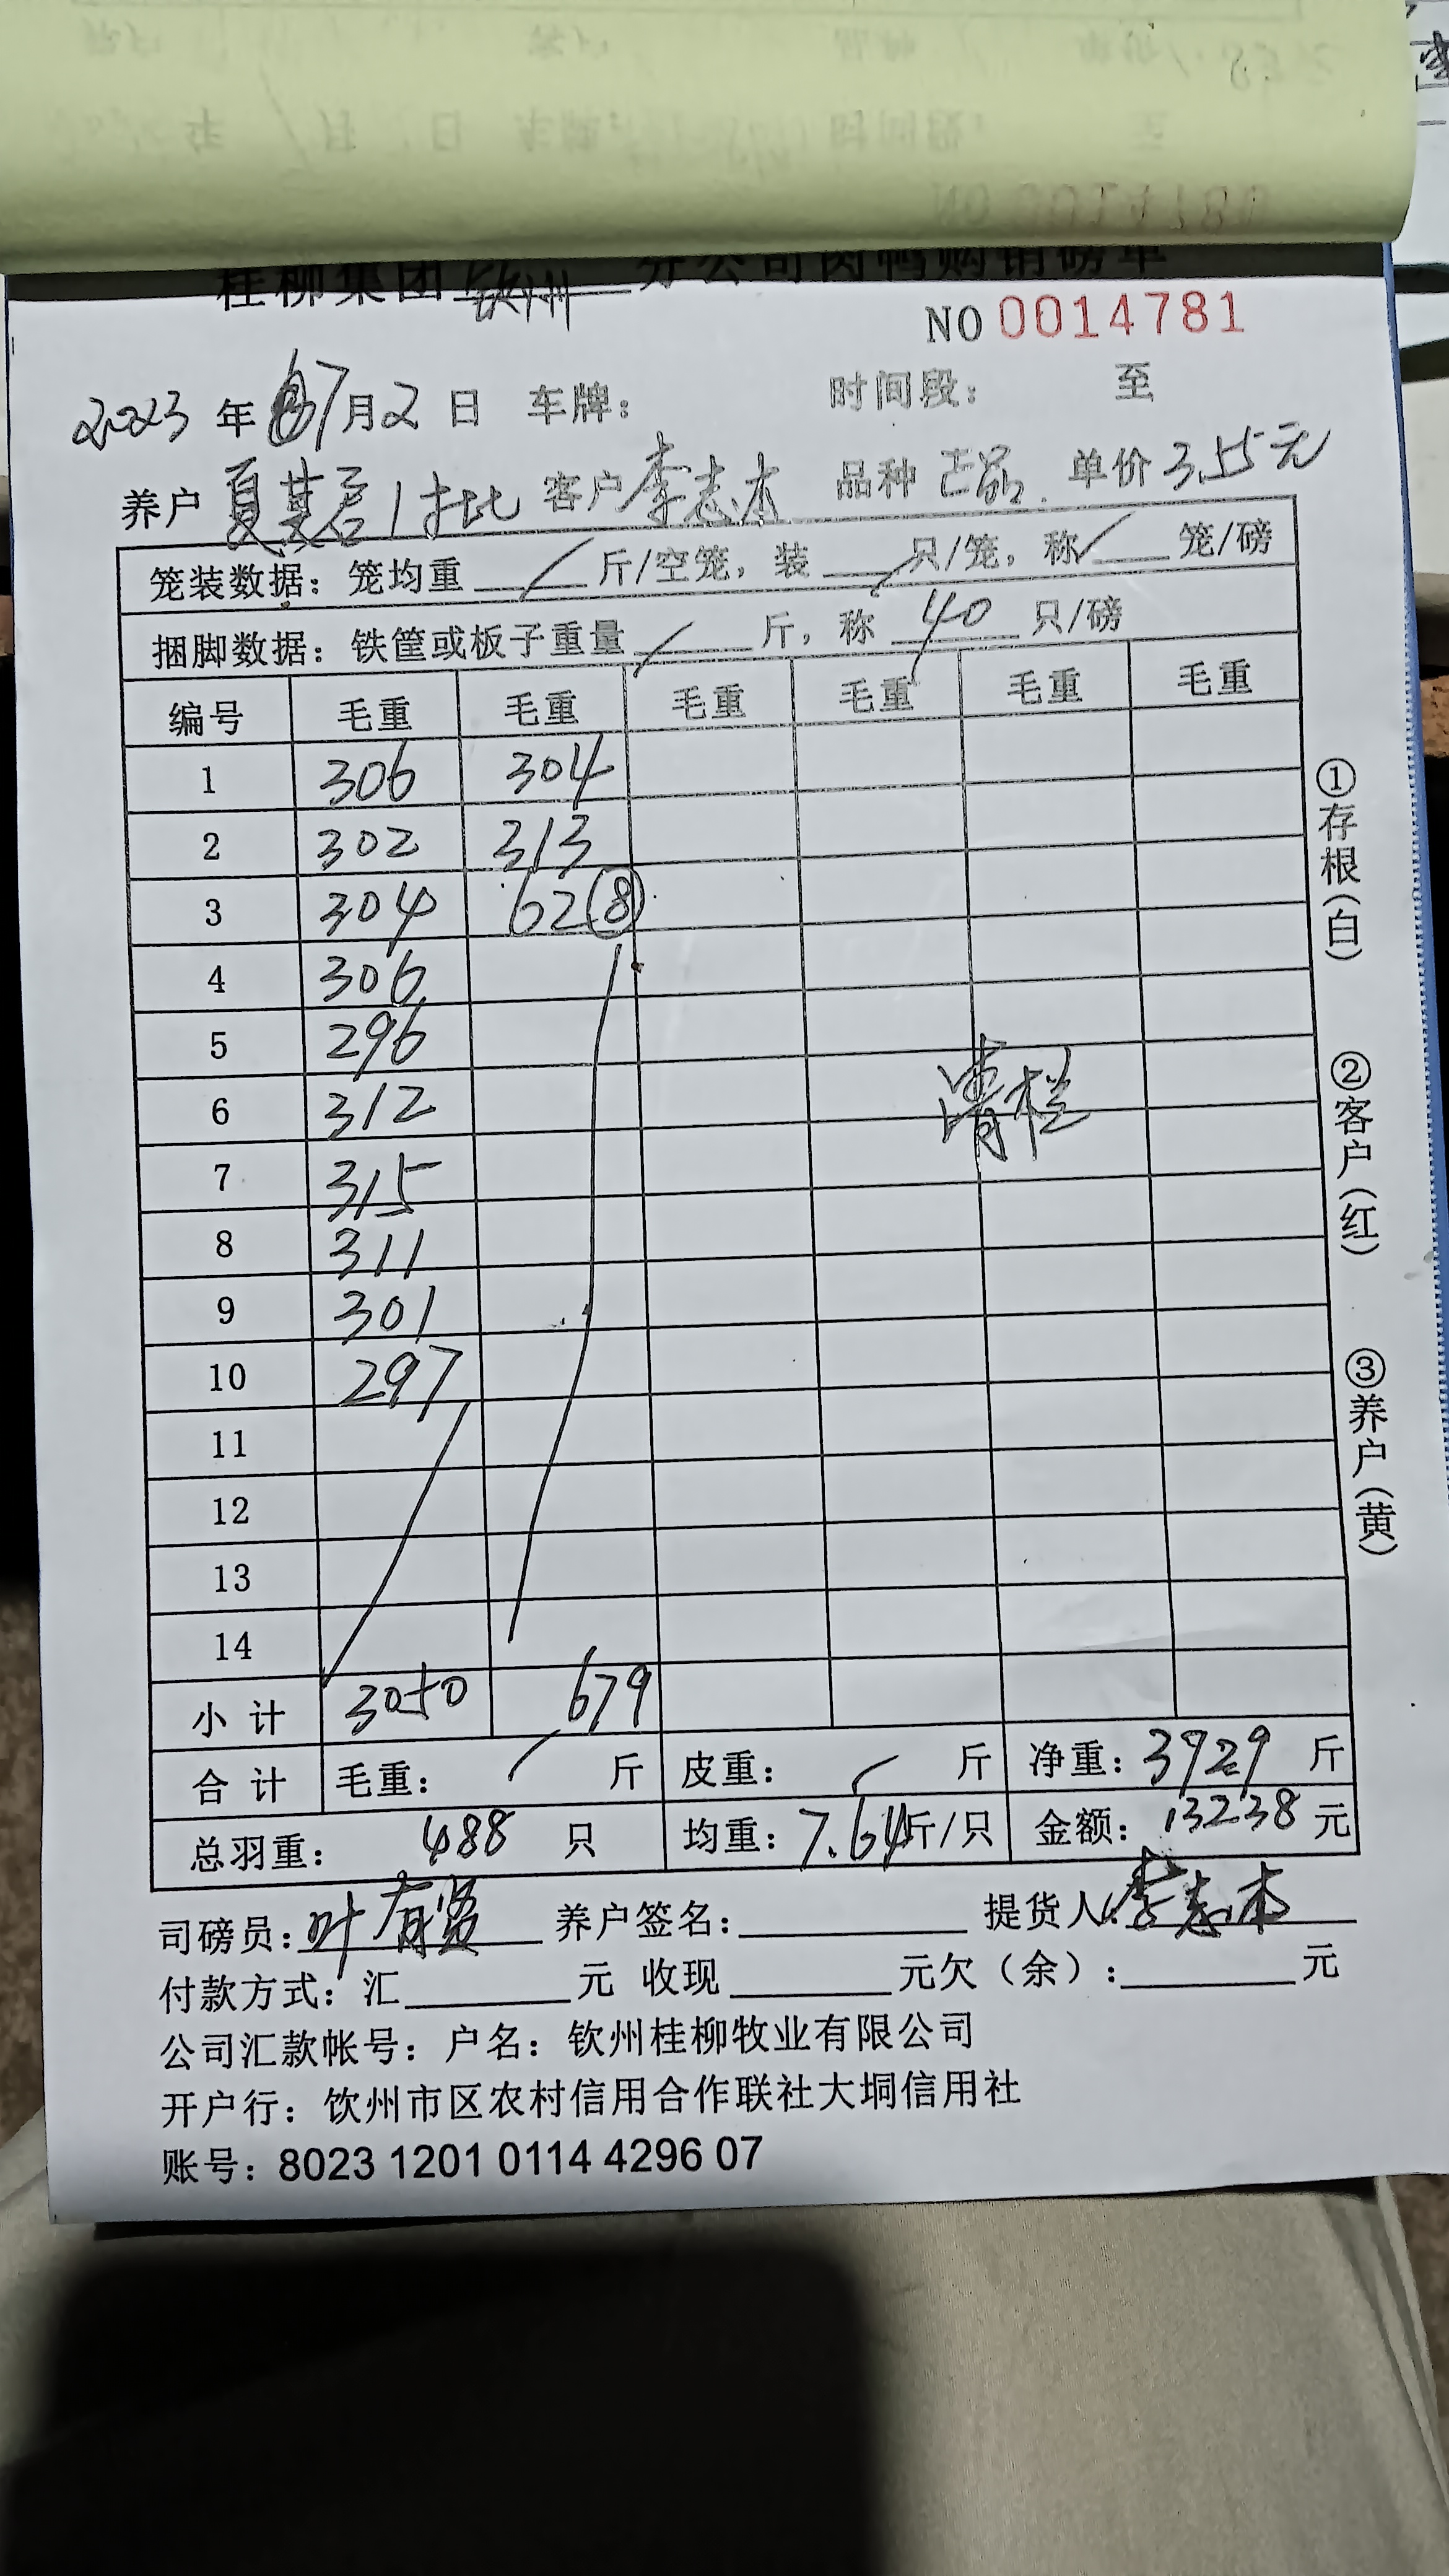 桂柳集团 钦州 分公司肉鸭购销磅单
NO 0014781
2023 年 7 月 2 日 车牌: 时间段: 至
养户 夏其君1批 客户 李志本 品种 品 单价 3.55元
笼装数据: 笼均重 / 斤/空笼, 装 / 只/笼, 称 / 笼/磅
捆脚数据: 铁筐或板子重量 / 斤, 称 40 只/磅
编号 毛重 毛重 毛重 毛重 毛重 毛重
1 306 304
2 302 313
3 304 62 ⑧
4 306
5 296 清栏
6 312
7 315
8 311
9 301
10 297
11
12
13
14
小计 3050 679
合计 毛重: / 斤 皮重: / 斤 净重: 3729 斤
总羽重: 488 只 均重: 7.64 斤/只 金额: 13238 元
司磅员: 叶有贤 养户签名: 提货人: 李志本
付款方式: 汇 元 收现 元欠(余): 元
公司汇款帐号: 户名: 钦州桂柳牧业有限公司
开户行: 钦州市区农村信用合作联社大垌信用社
账号: 8023 1201 0114 4296 07
①存根(白)
②客户(红)
③养户(黄)